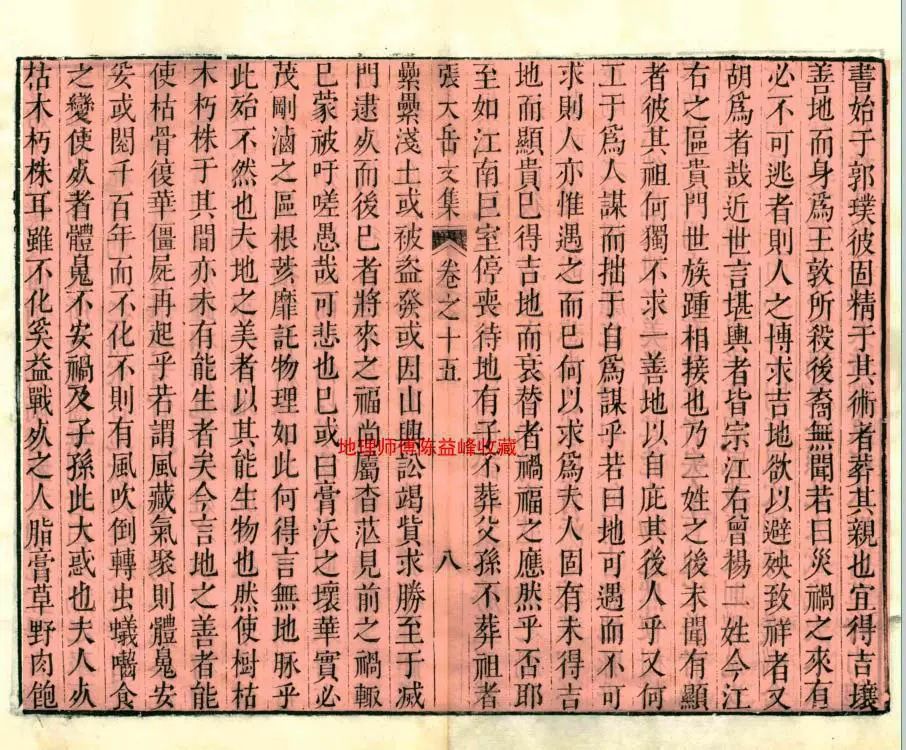 書始于郭璞彼固精于其術者葬其親也宜得吉壤
善地而身爲王敦所殺後裔無聞若曰災禍之來有
必不可逃者則人之博求吉地欲以避殃致祥者又
胡爲者哉近世言堪輿者皆宗江右曾楊二姓今江
右之區貴門世族踵相接也乃二姓之後未聞有顯
者彼其祖何獨不求一善地以自庇其後人乎又何
工于爲人謀而拙于自爲謀乎若曰地可遇而不可
求則人亦惟遇之而已何以求爲夫人固有未得吉
地而顯貴已得吉地而衰替者禍福之應然乎否耶
至如江南巨室停喪待地有子不葬父孫不葬祖者
張大岳文集
卷之十五
八
纍纍淺土或被盜發或因山興訟竭貲求勝至于滅
門逮死而後已者將來之福尚屬杳茫見前之禍輙
已蒙被吁嗟愚哉可悲也已或曰膏沃之壤華實必
茂剛滷之區根荄靡託物理如此何得言無地脉乎
此殆不然也夫地之美者以其能生物也然使樹枯
木朽株于其間亦未有能生者矣今言地之善者能
使枯骨復華僵屍再起乎若謂風藏氣聚則體鬼安
妥或閱千百年而不化不則有風吹倒轉虫蟻嚙食
之變使死者體鬼不安禍及子孫此大惑也夫人死
枯木朽株耳雖不化奚益戰死之人脂膏草野肉飽
地理师傅陈益峰收藏